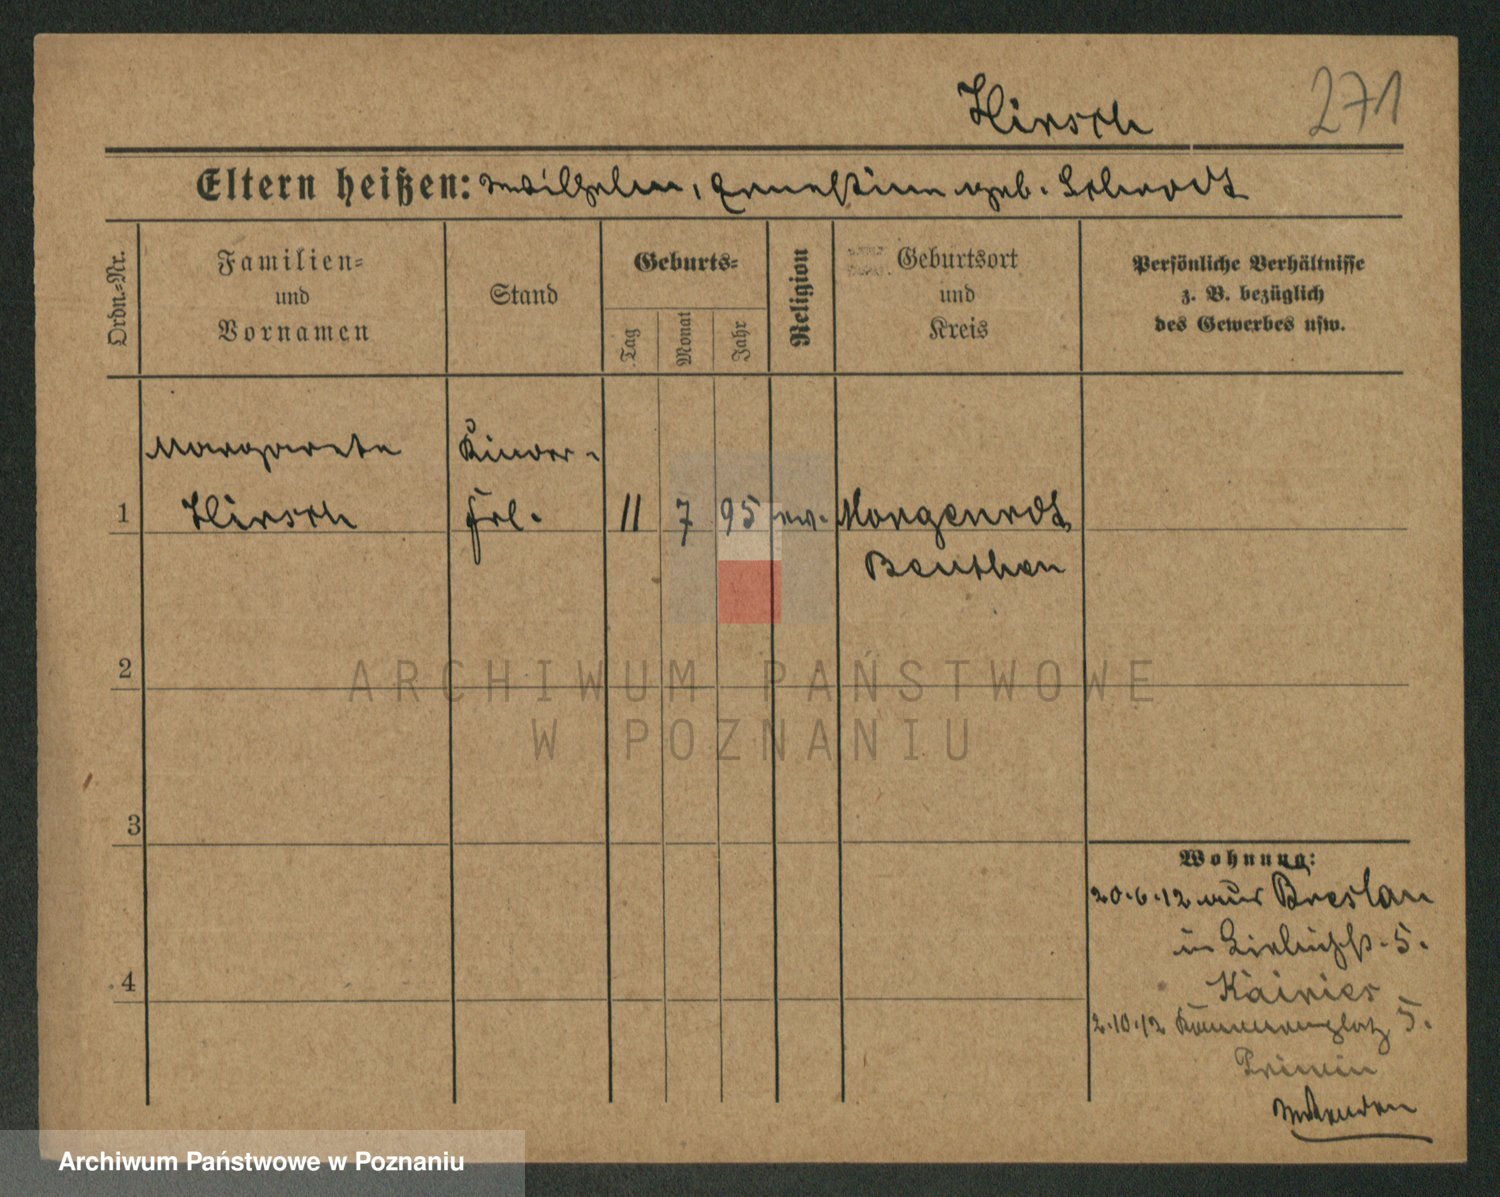 Hirsch
271
Eltern heißen: Wilhelm, Ernestine geb. Schrodt
Ordn.-Nr.
Familien-
und
Vornamen
Stand
Geburts-
Tag
Monat
Jahr
Religion
Geburtsort
und
Kreis
Persönliche Verhältnisse
z. B. bezüglich
des Gewerbes usw.
Margarete
Kinder-
1
Hirsch
Frl.
11
7
95
ev.
Morgenrot
Beuthen
2
3
4
Wohnung:
20.6.12 aus Breslau
in 5.
Kairies
2.10.12 5.
ARCHIWUM PAŃSTWOWE
W POZNANIU
Archiwum Państwowe w Poznaniu